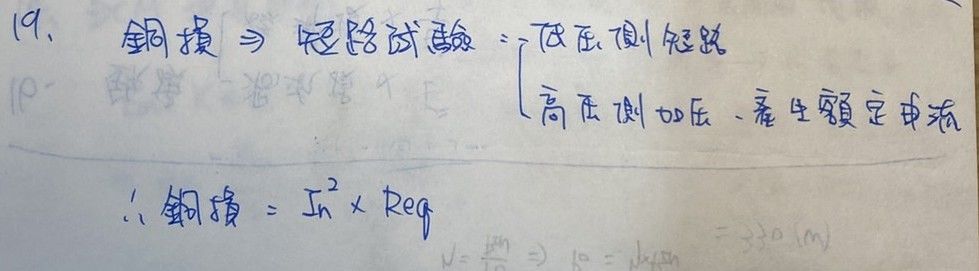 19. 銅損 ⇒ 短路試驗 : 低壓側短路
高压側加压、產生額定电流
∴ 銅損 = In² × Req